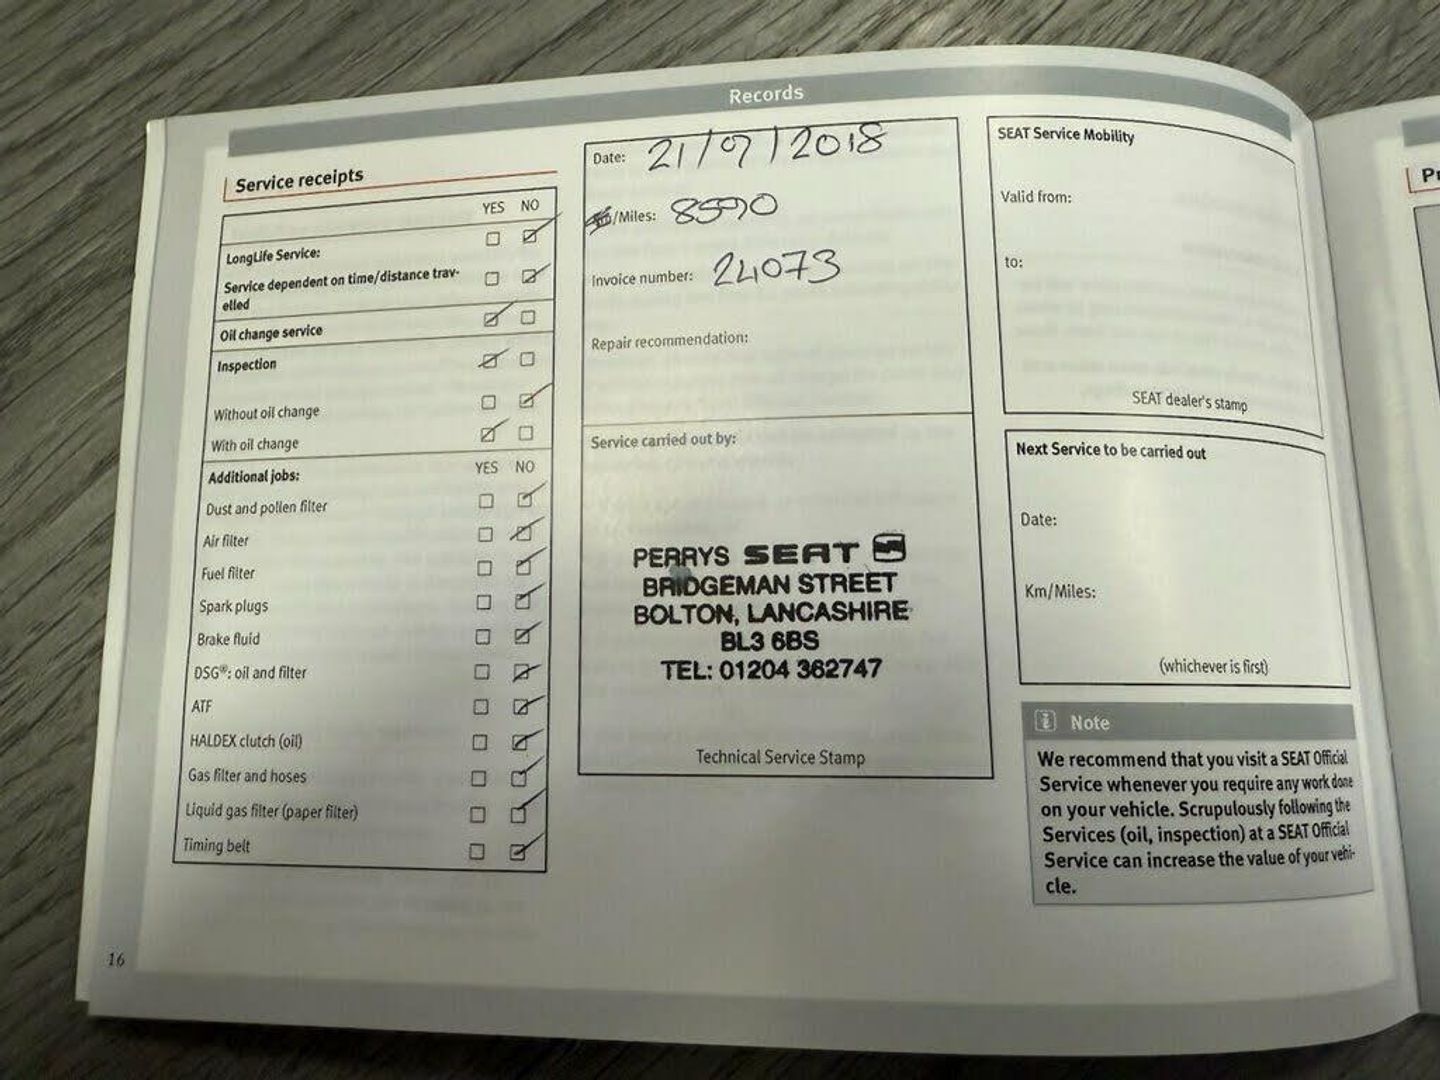 Records
Service receipts
YES NO
LongLife Service:
Service dependent on time/distance trav-
elled
Oil change service
Inspection
Without oil change
With oil change
Additional jobs: YES NO
Dust and pollen filter
Air filter
Fuel filter
Spark plugs
Brake fluid
DSG®: oil and filter
ATF
HALDEX clutch (oil)
Gas filter and hoses
Liquid gas filter (paper filter)
Timing belt
16
Date: 21/9/2018
/Miles: 8590
Invoice number: 24073
Repair recommendation:
Service carried out by:
PERRYS SEAT
BRIDGEMAN STREET
BOLTON, LANCASHIRE
BL3 6BS
TEL: 01204 362747
Technical Service Stamp
SEAT Service Mobility
Valid from:
to:
SEAT dealer's stamp
Next Service to be carried out
Date:
Km/Miles:
(whichever is first)
i Note
We recommend that you visit a SEAT Official
Service whenever you require any work done
on your vehicle. Scrupulously following the
Services (oil, inspection) at a SEAT Official
Service can increase the value of your vehi-
cle.